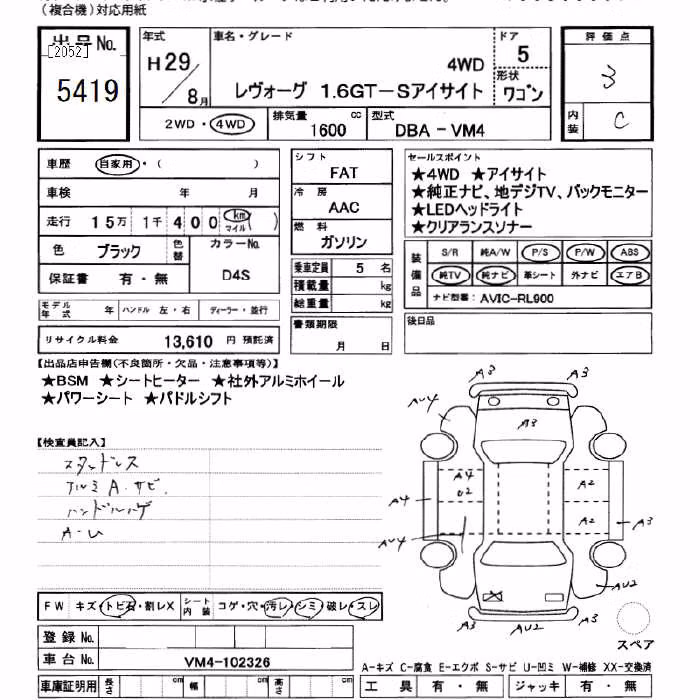 (複合機)対応用紙
出品No.
[2052]
5419
年式
H29/8月
車名・グレード
4WD
レヴォーグ 1.6GT-Sアイサイト
ドア
5
形状
ワゴン
評価点
3
内装
C
2WD・4WD
排気量
1600 cc
型式
DBA-VM4
車歴 自家用・( )
車検 年 月
走行 15万 1千 400 km マイル( )
色 ブラック 色替
カラーNo.
D4S
保証書 有・無
モデル年式 年 ハンドル 左・右 ディーラー・並行
リサイクル料金 13,610 円 預託済
シフト
FAT
冷房
AAC
燃料
ガソリン
乗車定員 5 名
積載量 kg
総重量 kg
書類期限
月 日
セールスポイント
★4WD ★アイサイト
★純正ナビ、地デジTV、バックモニター
★LEDヘッドライト
★クリアランスソナー
装備品
S/R 純A/W P/S P/W ABS
純TV 純ナビ 革シート 外ナビ エアB
ナビ型番: AVIC-RL900
後日品
【出品店申告欄(不良箇所・欠品・注意事項等)】
★BSM ★シートヒーター ★社外アルミホイール
★パワーシート ★パドルシフト
【検査員記入】
スタッドレス
アルミ A.サビ.
ハンドルハゲ
A-U
A3 A3
AU4
A3
A4
U2
A2
A4
A2
A3
AU4
AU2
A3 AU2 A3
スペア
FW キズ・トビ石・割レX
シート内装 コゲ・穴・汚レ・シミ・破レ・スレ
登録No.
車台No. VM4-102326
車庫証明用 長さ cm 幅 cm 高さ cm
A-キズ C-腐食 E-エクボ S-サビ U-凹ミ W-補修 XX-交換済
工具 有・無 ジャッキ 有・無